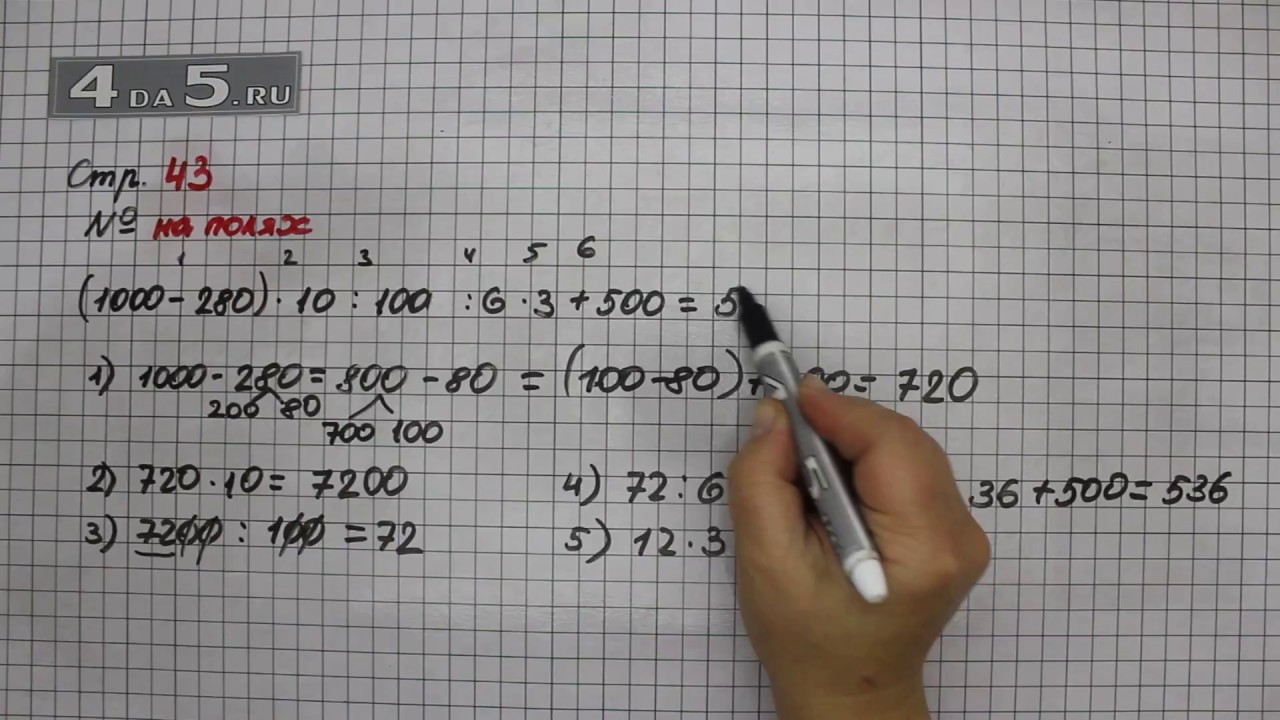 4 DA 5.RU
Стр. 43
№ на полях
1 2 3 4 5 6
(1000 - 280) · 10 : 100 : 6 · 3 + 500 = 5
1) 1000 - 280 = 800 - 80 = (100 - 80) + 00 = 720
200 80
700 100
2) 720 · 10 = 7200 4) 72 : 6 36 + 500 = 536
3) 7200 : 100 = 72 5) 12 · 3